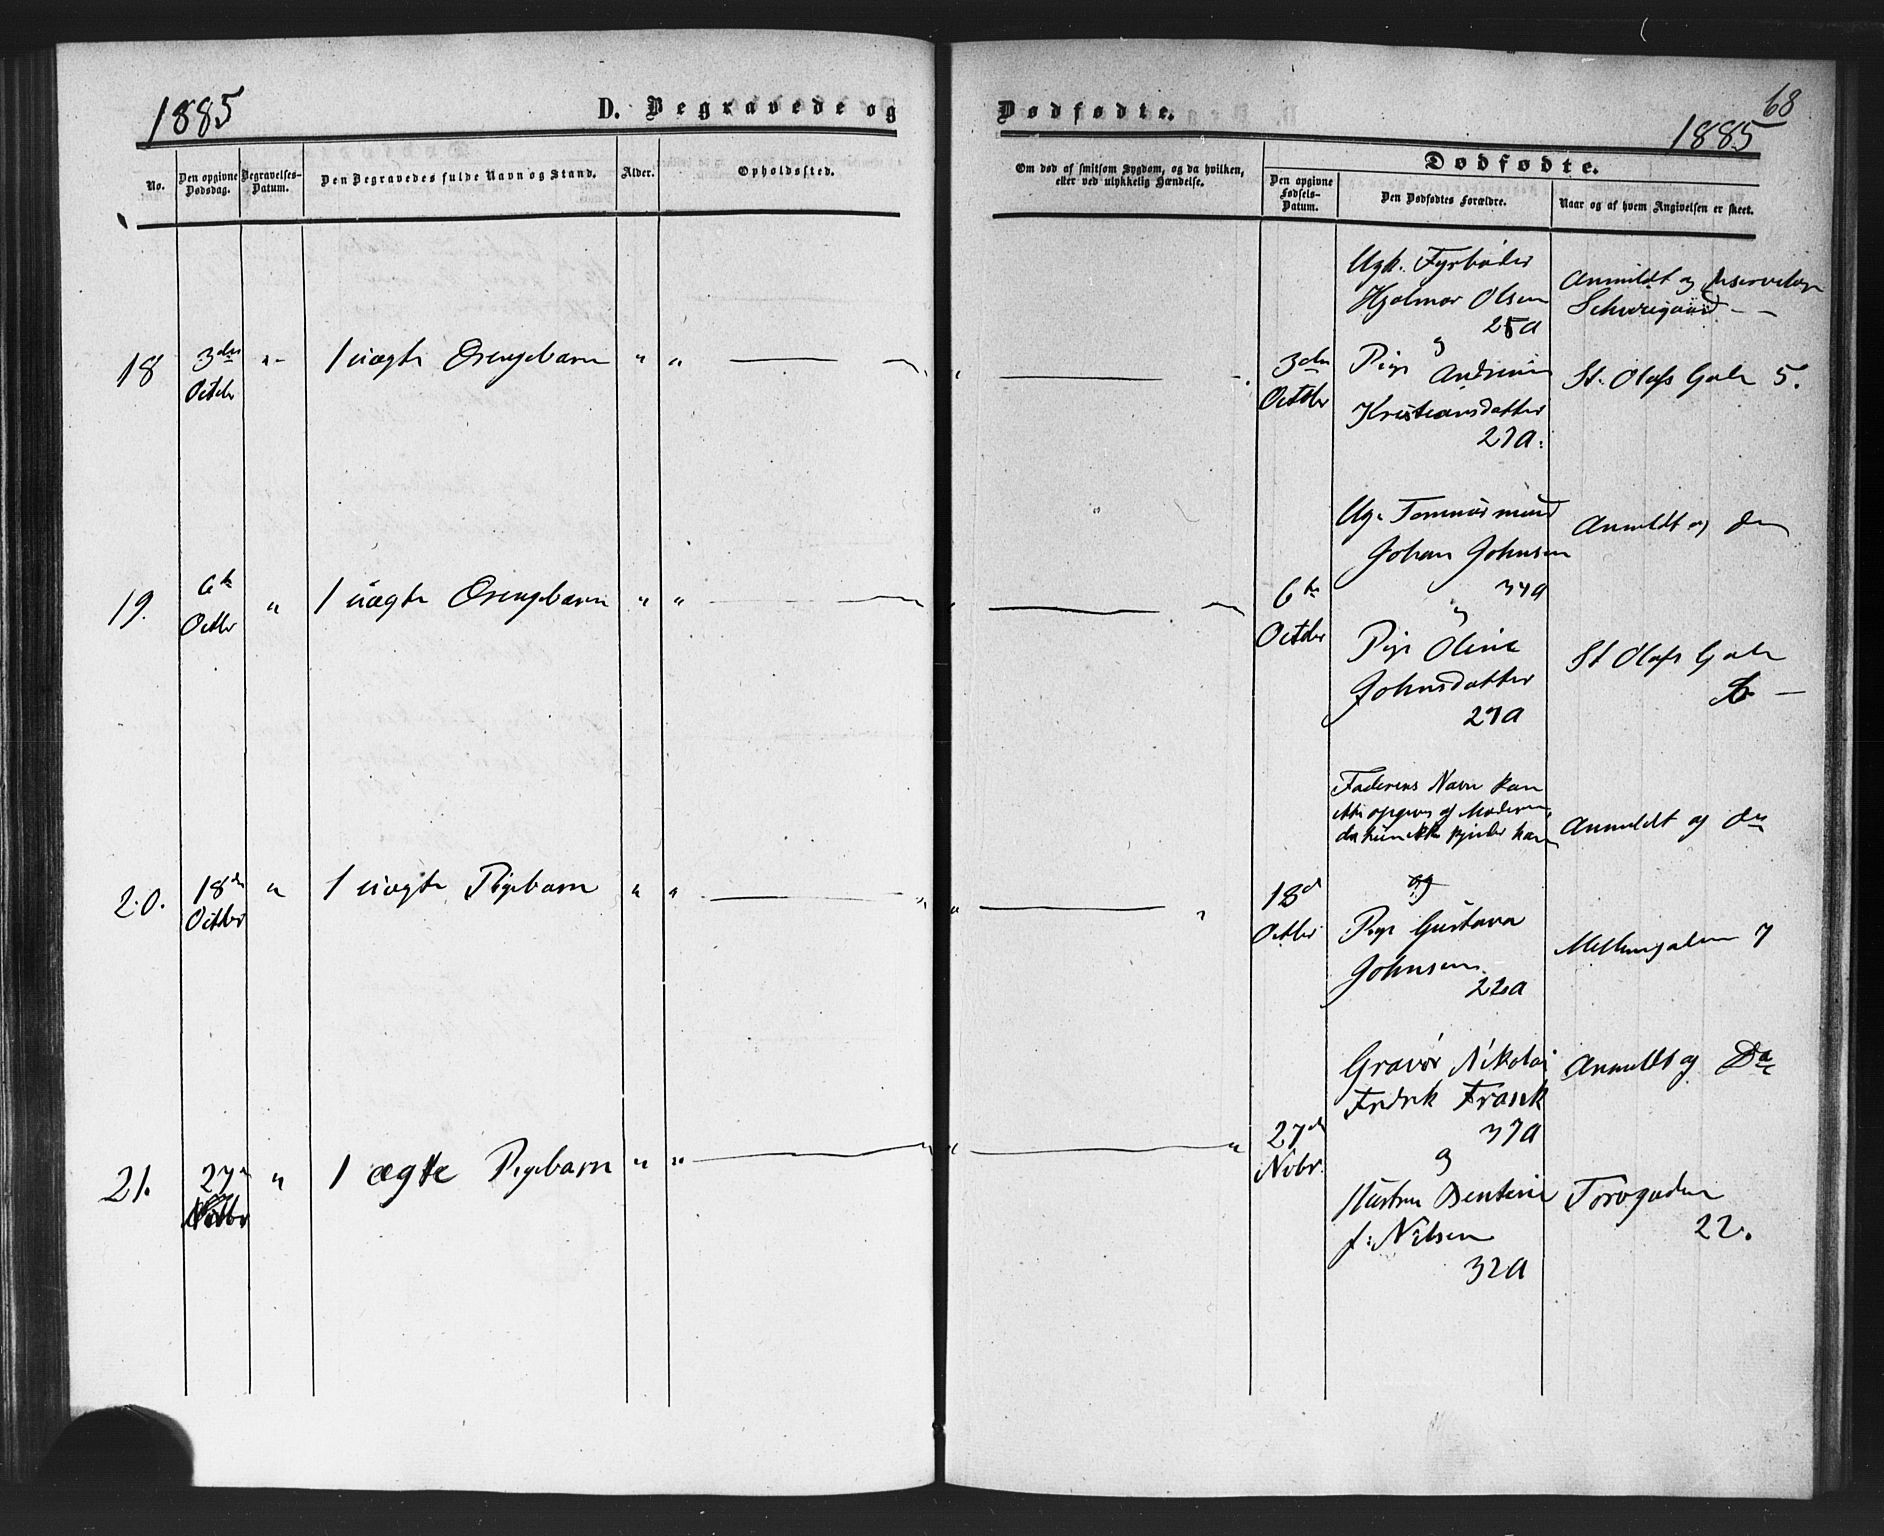 1885
D. Begravede og
Dødfødte.
68
1885
No.
Den opgivne Dødsdag.
Begravelses-Datum.
Den Begravedes fulde Navn og Stand.
Alder.
Opholdssted.
Om død af smitsom Sygdom, og da hvilken,
eller ved ulykkelig Hændelse.
Dødfødte.
Den opgivne Fødsels-Datum.
Den Dødfødtes Forældre.
Naar og af hvem Angivelsen er skeet.
18
3die
Octbr
"
1 uægte Drengebarn
" "
"
3die
Octbr
Ugk. Fyrbøder
Hjalmar Olsen
25 A
og
Pige Andrine
Kristiansdatter
27 A.
Anmeldt og
Schweigaard
St. Olafs Gade 5.
19.
6te
Octbr
"
1 uægte Drengebarn
" "
6te
Octbr
Ug. Tømmermand
Johan Johnsen
34 A
og
Pige Oline
Johnsdatter
27 A
Anmeldt og
St Olafs Gade
20.
18de
Octbr
"
1 uægte Pigebarn
" "
"
18d
Octbr
Faderens Navn kan
ikke opgives af Moderen,
da hun ikke kjender ham
og
Pige Gustava
Johnsen
22 A
Anmeldt og
Mellemgaden 7
21.
27de
"
1 ægte Pigebarn
" "
"
27de
Nvbr.
Gravør Nikolai
Fredrik Frasek
37 A
og
Hustru Bentine
f: Nilsen
32 A
Anmeldt og
Torvgaden
22.